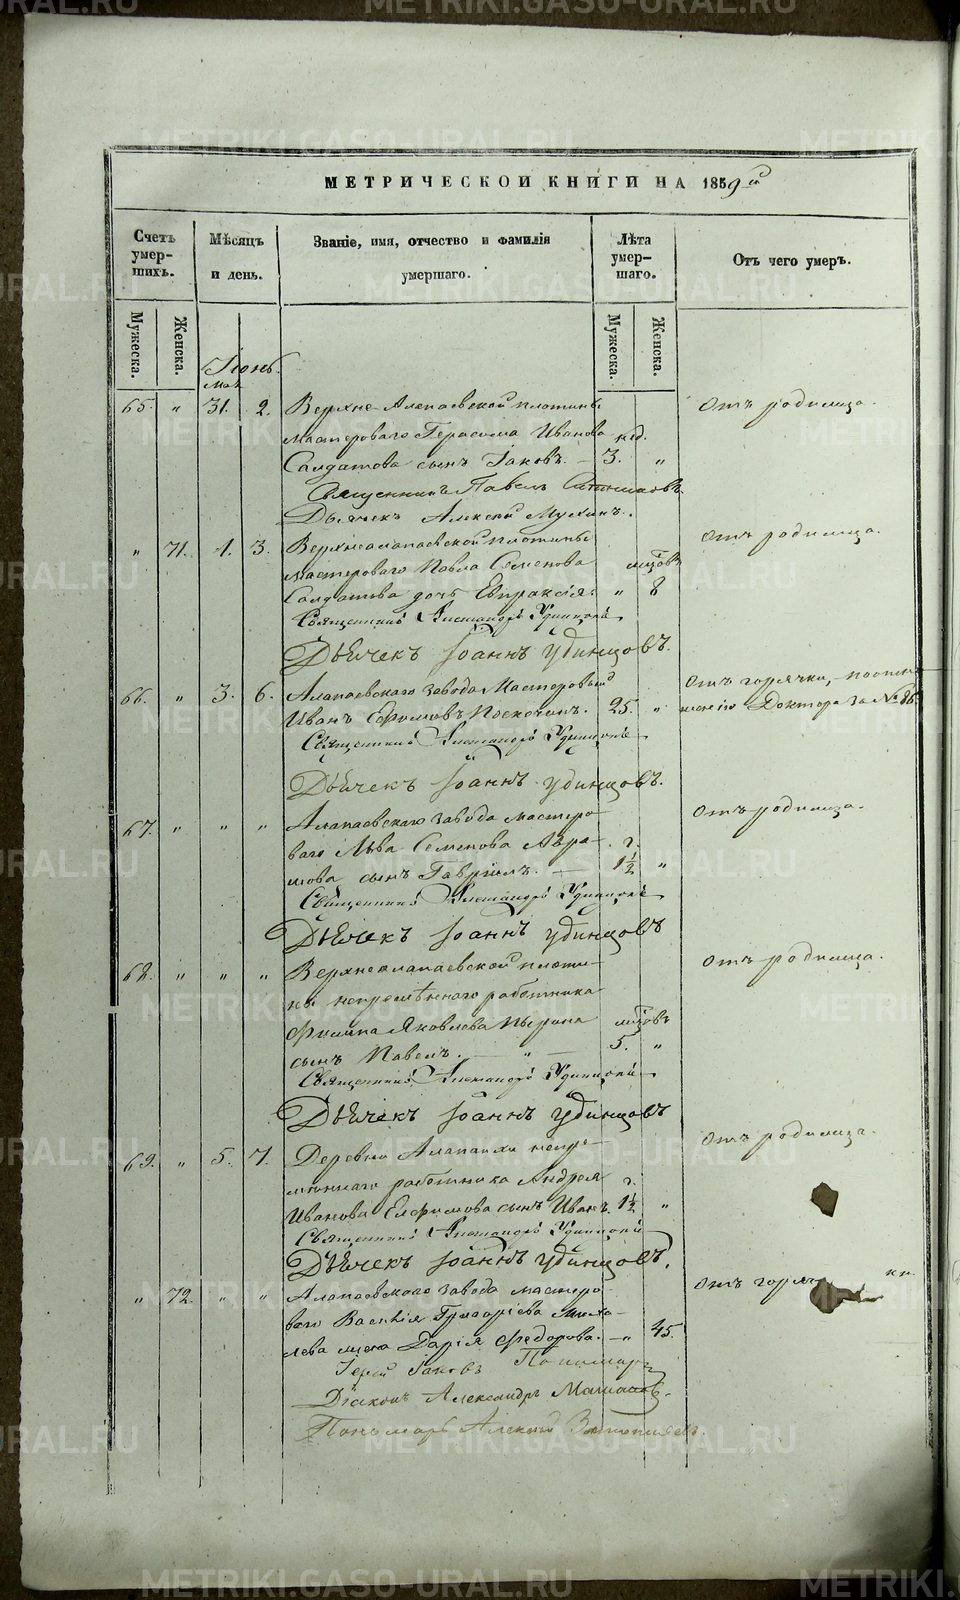 МЕТРИЧЕСКОЙ КНИГИ НА 1859й
Счетъ умер-шихъ.
Мѣсяцъ и день.
Званіе, имя, отчество и фамилія умершаго.
Лѣта умер-шаго.
Отъ чего умеръ.
Мужеска. Женска. Мужеска. Женска.
Іюнь.
Мая
65. " 31. 2. Верхне-Алапаевской плотины Отъ родимца.
мастероваго Герасима Иванова нед.
Салдатова сынъ Іаковъ. — 3. "
Священникъ Павелъ
Дьячекъ Алексѣй Мухинъ.
" 71. 1. 3. Верхнеалапаевской плотины Отъ родимца.
мастероваго Павла Семенова мцовъ
Салдатова дочь Евпраксія. " 8
Священникъ Александръ Удинцовъ
Дьячекъ Іоаннъ Удинцовъ.
66. " 3. 6. Алапаевскаго завода Мастеровый Отъ горячки,
Иванъ Ефимовъ 25. " Доктора за № 86.
Священникъ Александръ Удинцовъ
Дьячекъ Іоаннъ Удинцовъ.
67. " " " Алапаевскаго завода мастеро- Отъ родимца.
ваго Льва Семенова Абра- г.
мова сынъ Гавріилъ. — 1½ "
Священникъ Александръ Удинцовъ
Дьячекъ Іоаннъ Удинцовъ
68. " " " Верхнеалапаевской плоти- Отъ родимца.
ны непремѣннаго работника
Филипа Яковлева мцовъ
сынъ Павелъ. — " — 5. "
Священникъ Александръ Удинцовъ
Дьячекъ Іоаннъ Удинцовъ
69. " 5. 7. Деревни Алапаихи непре- Отъ родимца.
меннаго работника Андрея г.
Иванова Ефимова сынъ Иванъ. 1½ "
Священникъ Александръ Удинцовъ
Дьячекъ Іоаннъ Удинцовъ.
" 72. " " Алапаевскаго завода мастеро- Отъ горяч ки.
ваго Василія Григоріева Миха-
лева жена Дарія Федорова. — " 45.
Іерей Іаковъ Пономаревъ
Діаконъ Александръ
Пономарь Алексѣй
METRIKI.GASO-URAL.RU